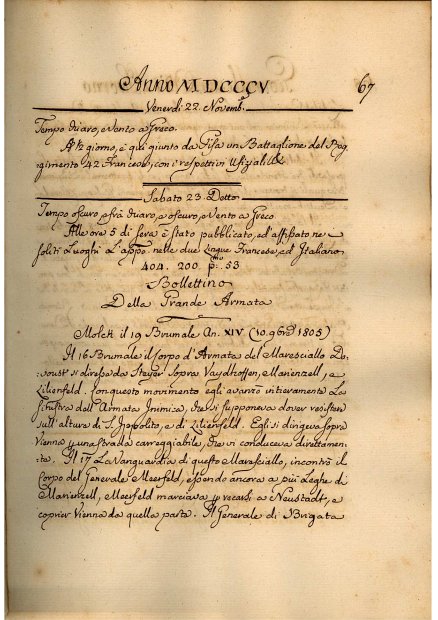 Anno MDCCCV.
67
Venerdi 22. Novemb.
Tempo chiaro, e Vento a Greco.
A ½ giorno, è qui giunto da Pisa un Battaglione del Reg
gimento 42 Francese, con i respettivi Ufiziali &
Sabato 23. Detto.
Tempo oscuro, e frà chiaro, e oscuro, e Vento a Greco
Alle ore 5 di sera è stato pubblicato, ed affissato ne
soliti Luoghi L'appo: nelle due Lingue Francese, ed Italiano
404. 200. p:mo 53
Bollettino
Della Grande Armata
Molck il 19 Brumale An. XIV (10. 9bre 1805)
Il 16 Brumale il Corpo d'Armata del Maresciallo Da-
voust si diresse da Steyer sopra Vaydhoffen, Marienzell, e
Lilienfeld. Con questo movimento egli avanzò intieramente La
Sinistra dell'Armata Inimica, che si supponeva dover resistere
sull'altura di S. Ippolito, e di Lilienfeld. Egli si dirigeva sopra
Vienna p una strada carreggiabile, che vi conduceva direttamen-
te. Il 17 La Vanguardia di questo Maresciallo, incontrò il
Corpo del Generale Meerfeld, essendo ancora a più Leghe di
Marienzell, Meerfeld marciava p recarsi a Neustadt, e
coprir Vienna da quella parte. Il Generale di Brigata